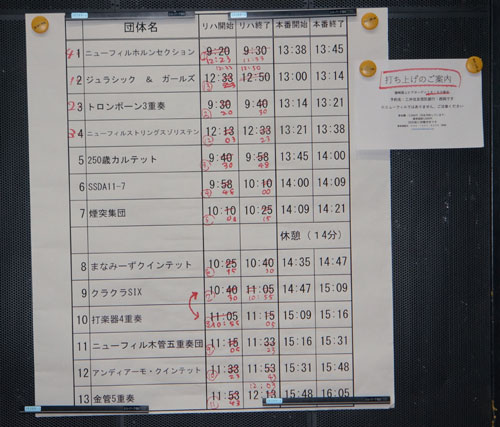 団体名 リハ開始 リハ終了 本番開始 本番終了
1 ニューフィルホルンセクション 9:20 9:30 13:38 13:45
12:23 11:33
12:33 12:50
2 ジュラシック & ガールズ 12:33 12:50 13:00 13:14
3 トロンボーン3重奏 9:30 9:40 13:14 13:21
20 30
4 ニューフィルストリングスゾリステン 12:13 12:33 13:21 13:38
03 23
5 250歳カルテット 9:40 9:58 13:45 14:00
30 48
6 SSDA11-7 9:58 10:10 14:00 14:09
48 00
7 煙突集団 10:10 10:25 14:09 14:21
00 15
休憩(14分)
8 まなみーずクインテット 10:25 10:40 14:35 14:47
15 30
9 クラクラSIX 10:40 11:05 14:47 15:09
30 10:55
10 打楽器4重奏 11:05 11:15 15:09 15:16
10:55 05
11 ニューフィル木管五重奏団 11:15 11:33 15:16 15:31
05 23
12 アンディアーモ・クインテット 11:33 11:53 15:31 15:48
23 43
12:03
13 金管5重奏 11:53 12:13 15:48 16:05
43
打ち上げのご案内